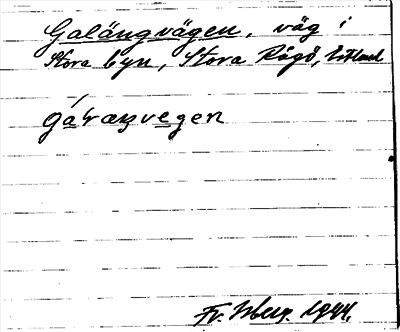 Galängvägen, väg i
Stora byn, Stora Rågö, Estland
gálraŋvegen
Fr. 1944.